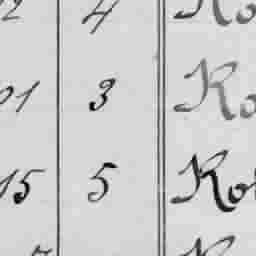 2 4 Ko
01 3 Ko
15 5 Kot